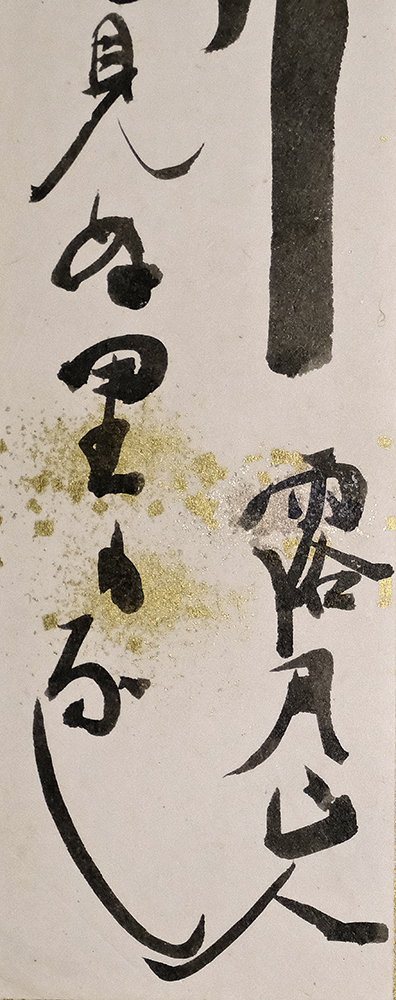 露月山人
見ぬ里もなし